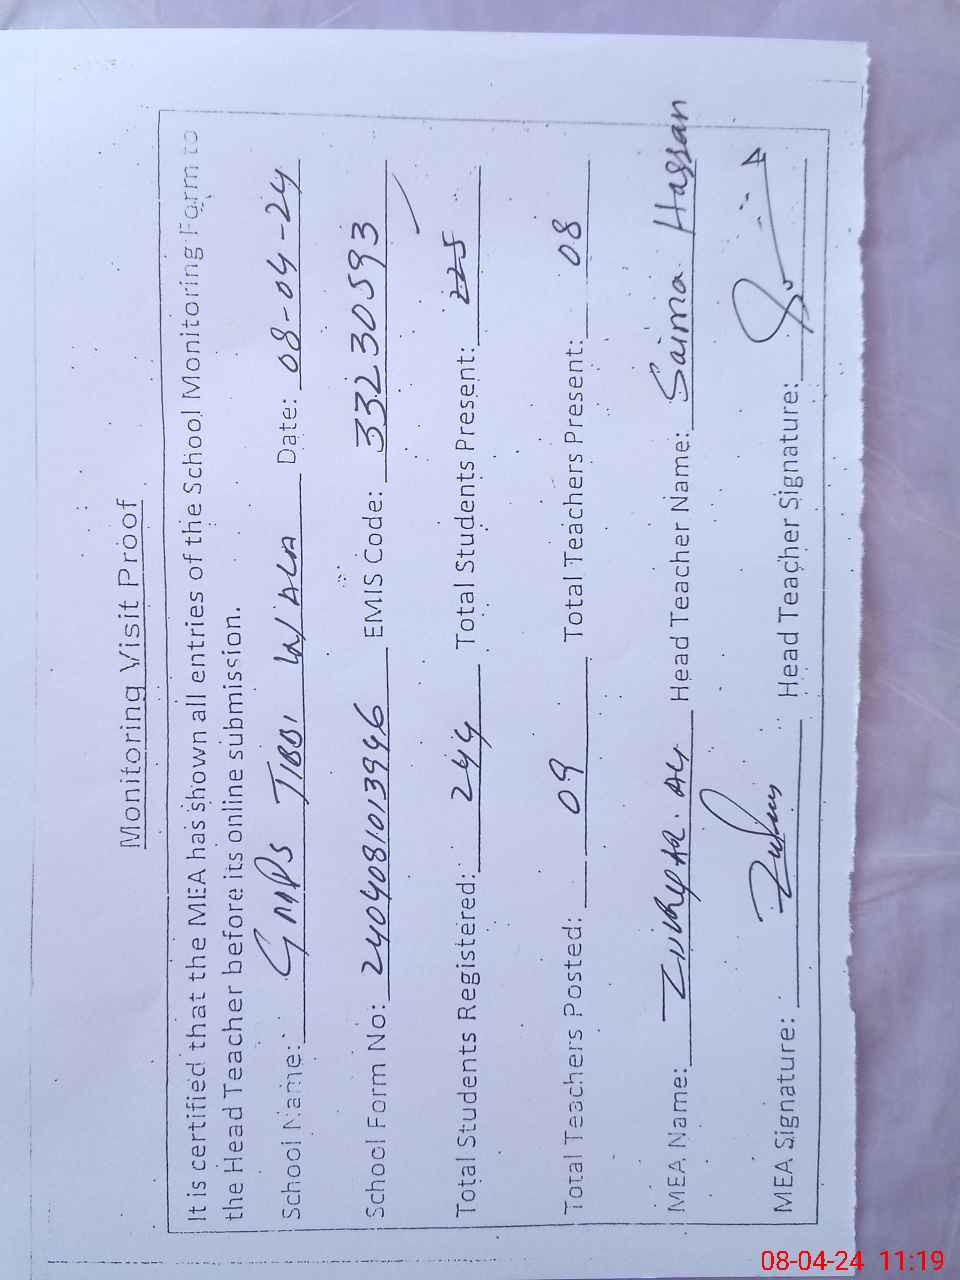 Monitoring Visit Proof
It is certified that the MEA has shown all entries of the School Monitoring Form to
the Head Teacher before its online submission.
School Name: GMPS TIBBI WALA Date: 08-04-24
School Form No: 2404081013946 EMIS Code: 33230593
Total Students Registered: 244 Total Students Present: 225
Total Teachers Posted: 09 Total Teachers Present: 08
MEA Name: Head Teacher Name: Saima Hassan
MEA Signature: Head Teacher Signature:
08-04-24 11:19